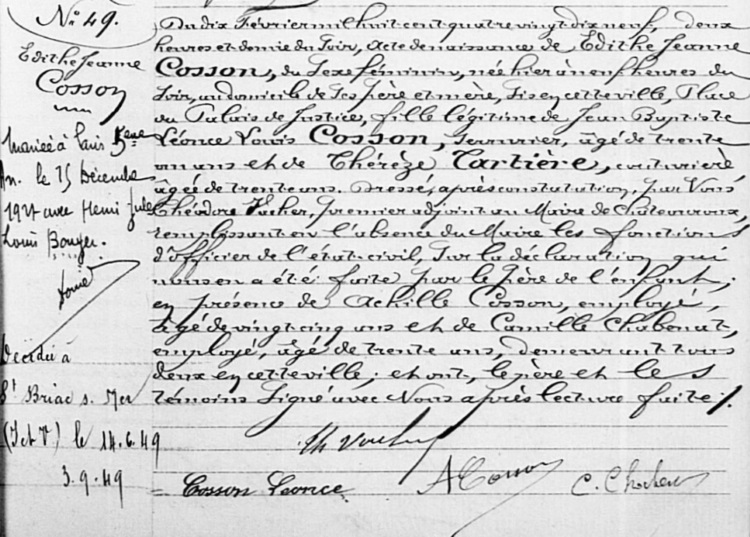 N° 49.
Edithe Jeanne
Cosson
Mariée à Paris 5eme
An. le 15 Décembre
1927 avec Henri Jules
Louis Bouyer.
Décédée à
St Briac s. Mer
(I et V) le 14.6.49
3.9.49
Du dix Février mil huit cent quatre vingt dix neuf, deux
heures et demie du soir, Acte de naissance de Edithe Jeanne
Cosson, du sexe féminin, née hier à neuf heures du
soir, au domicile de ses père et mère, sis en cette ville, Place
du Palais de Justice, fille légitime de Jean Baptiste
Léonce Louis Cosson, âgé de trente
un ans et de Thérèze Tartière, couturière
âgée de trente ans. Dressé, après constatation, par Nous
Théodore premier adjoint au Maire de Châteauroux,
remplissant en l'absence du Maire les fonctions
d'officier de l'état-civil, sur la déclaration qui
nous en a été faite par le père de l'enfant;
en présence de Achille Cosson, employé,
âgé de vingt cinq ans et de Camille Chabenat,
employé, âgé de trente ans, demeurant tous
deux en cette ville; et ont, le père et les
témoins signé avec Nous après lecture faite /.
Cosson Léonce
A Cosson